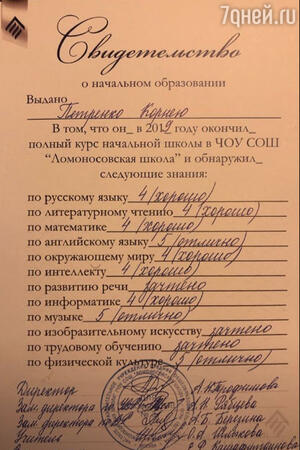 7дней.ru
Свидетельство
о начальном образовании
Выдано
Петренко Корнею
В том, что он_ в 2019 году окончил_
полный курс начальной школы в ЧОУ СОШ
"Ломоносовская школа" и обнаружил_
следующие знания:
по русскому языку 4 (хорошо)
по литературному чтению 4 (хорошо)
по математике 4 (хорошо)
по английскому языку 5 (отлично)
по окружающему миру 4 (хорошо)
по интеллекту 4 (хорошо)
по развитию речи зачтено
по информатике 4 (хорошо)
по музыке 5 (отлично)
по изобразительному искусству зачтено
по трудовому обучению зачтено
по физической культуре 5 (отлично)
Директор
Зам. директора по
Зам. директора по
Учитель